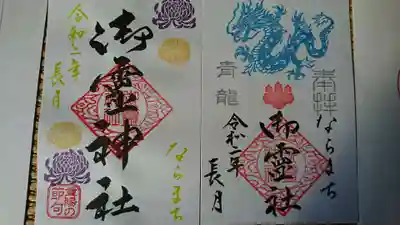 令和二年
長月
御霊神社
ならまち
奉拝
ならまち
青龍
御霊社
令和二年
長月